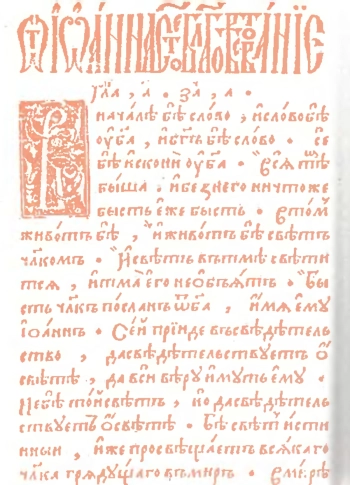 Ѿ Іѡанна ст҃ое бл҃говѣствованїе
гл҃а , а҃ · за҃ , а ·
В начáлѣ бѣ̀ слóво , и҆слóво бѣ̀
ѹ҆б҃а , и҆б҃гъ бѣ̀ слóво · се
бѣ̀ и҆скони ѹ҆б҃а · всѧ̑ тѣм
бы́ша · и҆безнего ничтоже
бысть е҆же бысть · втом
живóтъ бѣ̀ , и҆живóтъ бѣ̀ свѣ́тъ
чл҃комъ · И҆свѣтъ вътмѣ свѣти
тсѧ , и҆тмà е҆го необъѧ́тъ · Бы
сть чл҃къ посланъ ѿб҃а , и҆́мѧ е҆мꙋ
і҆ѡáннъ · Сей прїи́де въсвѣдѣтель
ство , дасвѣдѣ́тельствуетъ ѡ҆
свѣ́тѣ , да вси вѣ́рꙋ и҆мꙋть е҆мꙋ ·
Небѣ̀ то́й свѣтъ , но дасвѣдѣ́тель
ствуетъ ѡ҆свѣ́тѣ · Бѣ̀ свѣ́тъ и҆сти
нныи , и҆́же просвѣщáетъ всѧ́каго
чл҃ка грѧдꙋ́щаго въмиръ · вми́рѣ